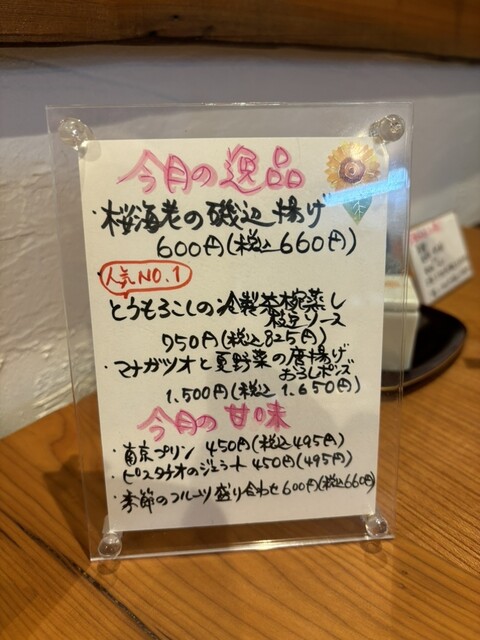 今月の逸品
・桜海老の磯辺揚げ
600円(税込660円)
人気NO.1
とうもろこしの冷製茶椀蒸し
枝豆ソース
750円(税込825円)
・マナガツオと夏野菜の唐揚げ
おろしポンズ
1,500円(税込1,650円)
今月の甘味
・南京プリン 450円(税込495円)
・ピスタチオのジェラート 450円(495円)
・季節のフルーツ盛り合わせ600円(税込660円)